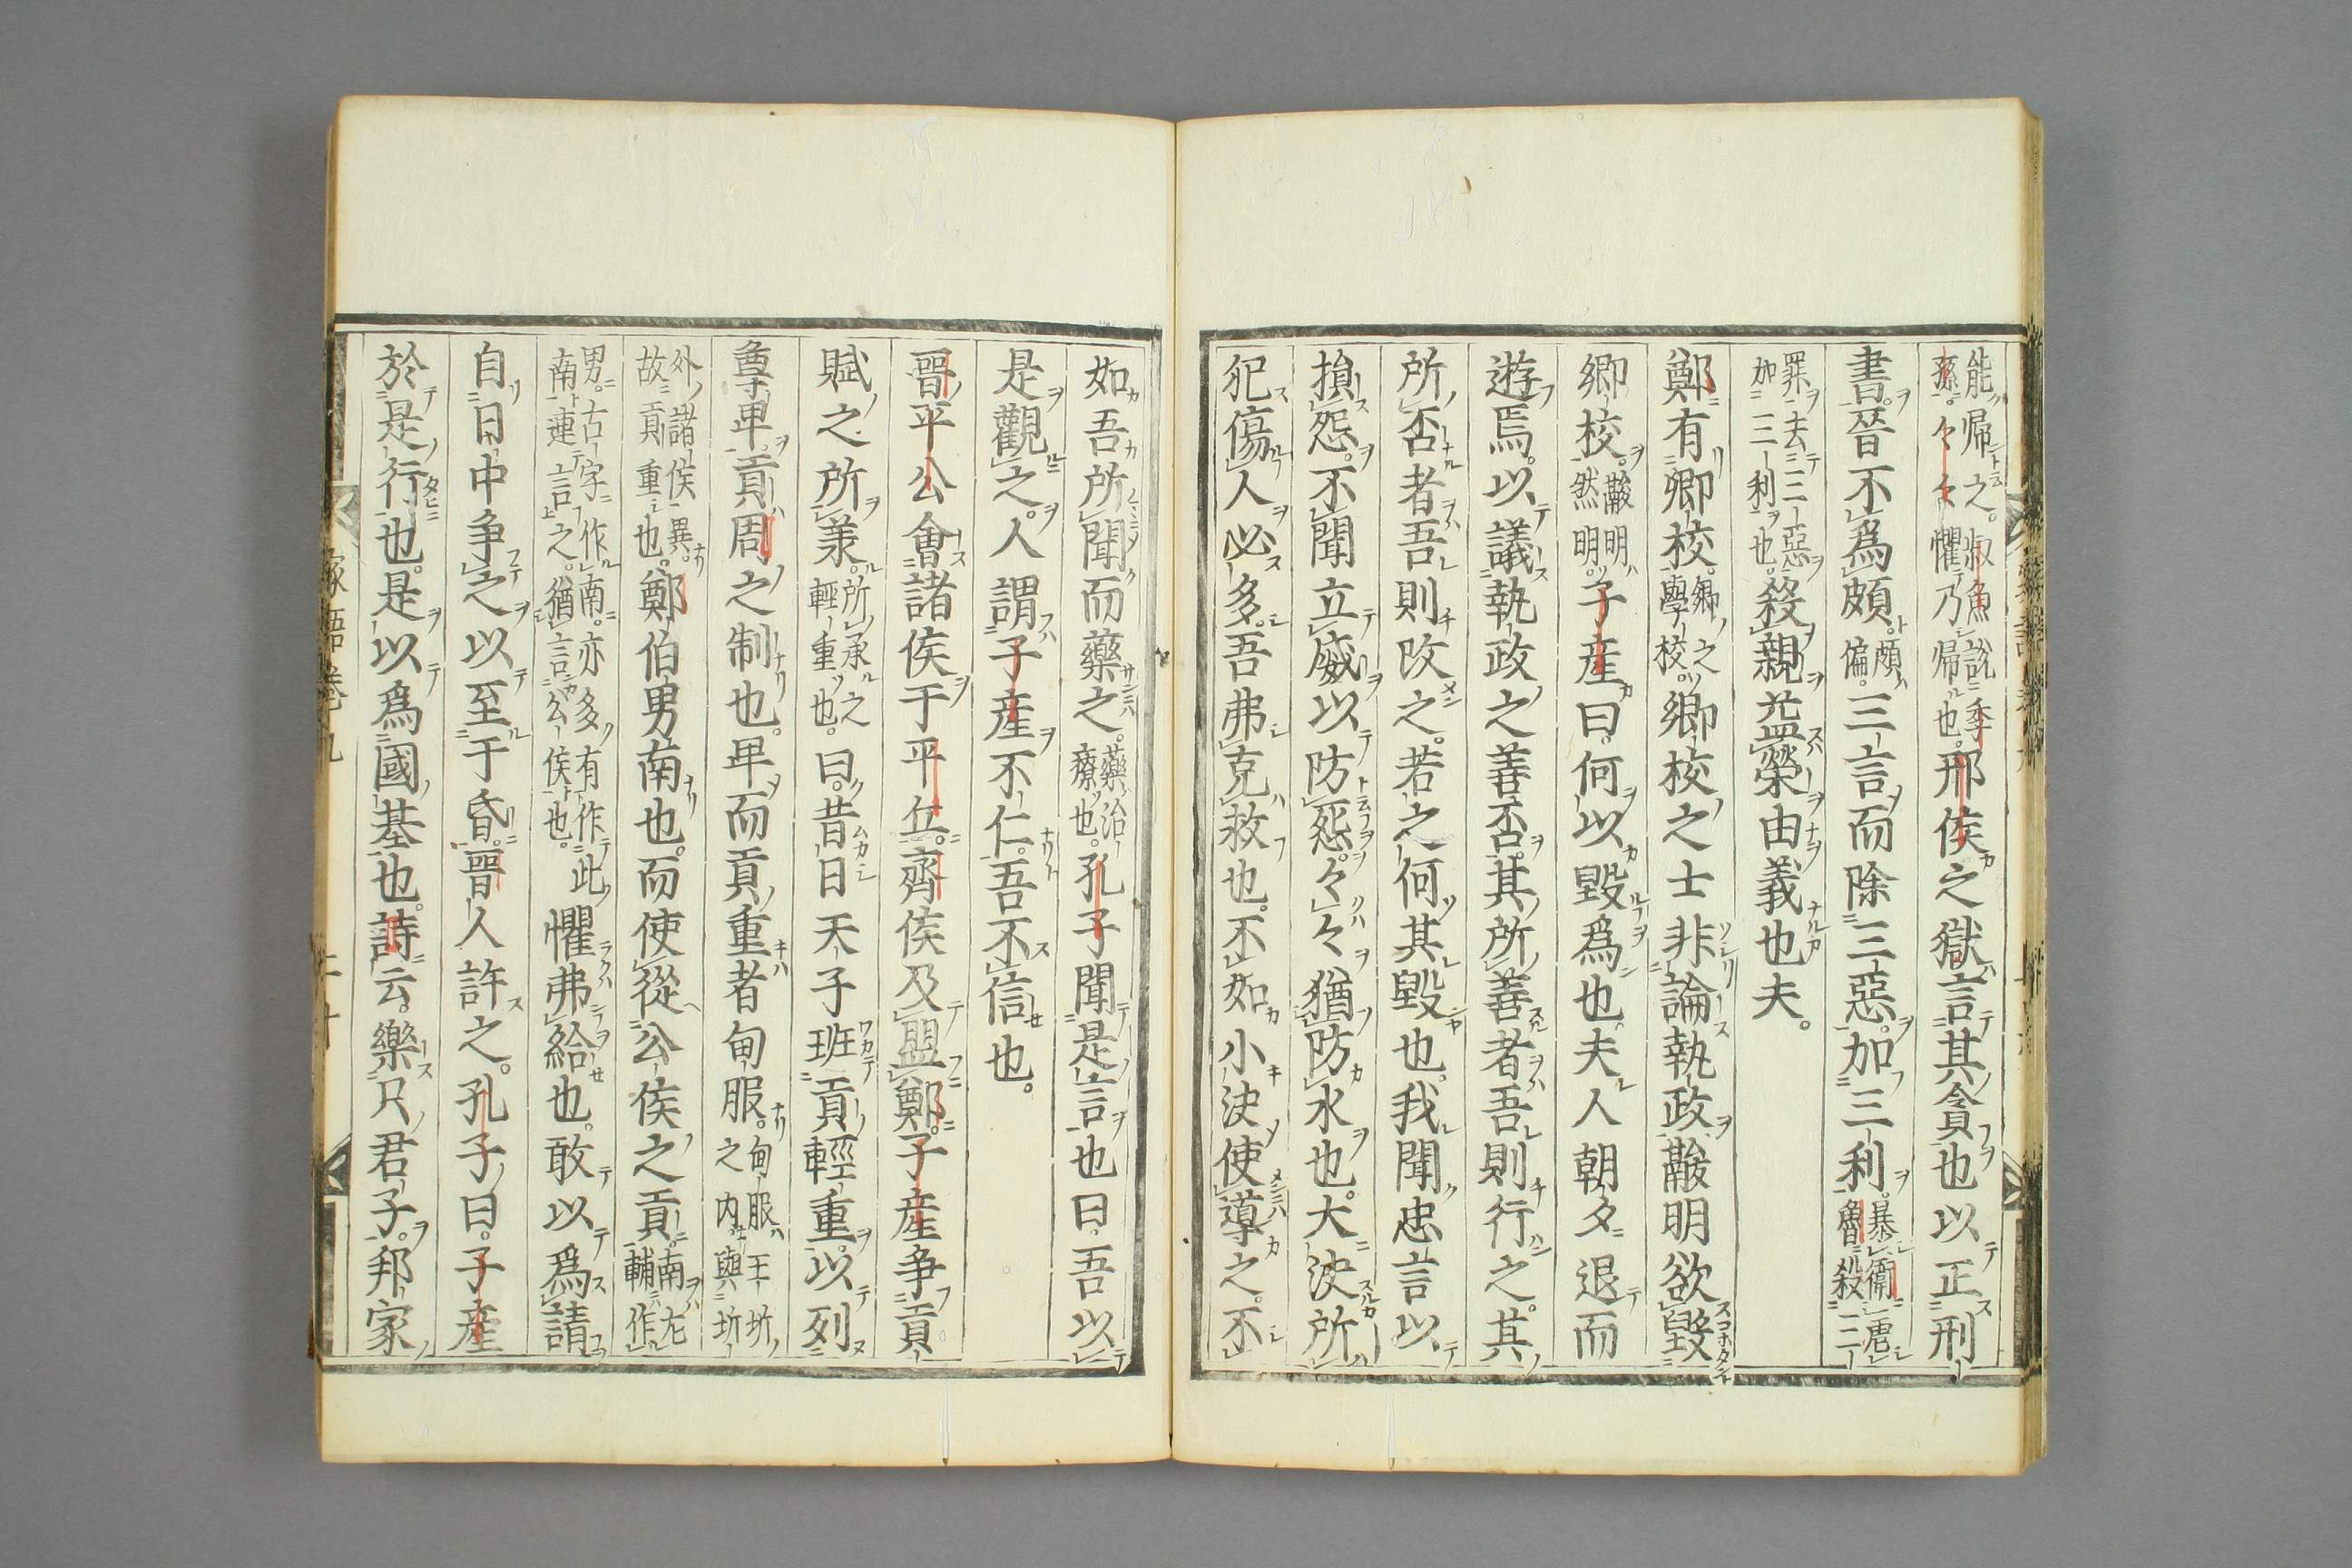 能帰之。叔魚説季孫。々々懼乃帰也。邢侯之獄言其貪也以正刑
書。晉不爲頗。頗偏。三言而除三惡。加三利。暴衞虐魯殺三
罪去三惡加三利也。殺親益榮由義也夫。
鄭有郷校。郷之學校。郷校之士非論執政鬷明欲毀
郷校。鬷明然明。子産曰。何以毀爲也夫人朝夕退而
遊焉。以議執政之善否。其所善者吾則行之。其
所否者吾則改之。若之何其毀也。我聞忠言以
損怨。不聞立威以防怨。々々猶防水也。大決所
犯傷人必多。吾弗克救也。不如小決使導之。不
如吾所聞而藥之。藥治療也。孔子聞是言也曰。吾以
是觀之。人謂子産不仁。吾不信也。
晉平公會諸侯于平丘。齊侯及盟。鄭子産争貢
賦之所兼。所承之輕重也。曰。昔日天子班貢輕重。以列
尊卑。貢周之制也。卑而貢重者甸服。甸服王圻之内與圻
外諸侯異。故貢重也。鄭伯男南也。而使從公侯之貢。南左輔作
男。古字作南。亦多有作此南連言之。猶言公侯也。懼弗給也。敢以爲請
自日中争之以至于昏。晉人許之。孔子曰。子産
於是行也。是以爲國基也。詩云。樂只君子。邦家
家語卷九